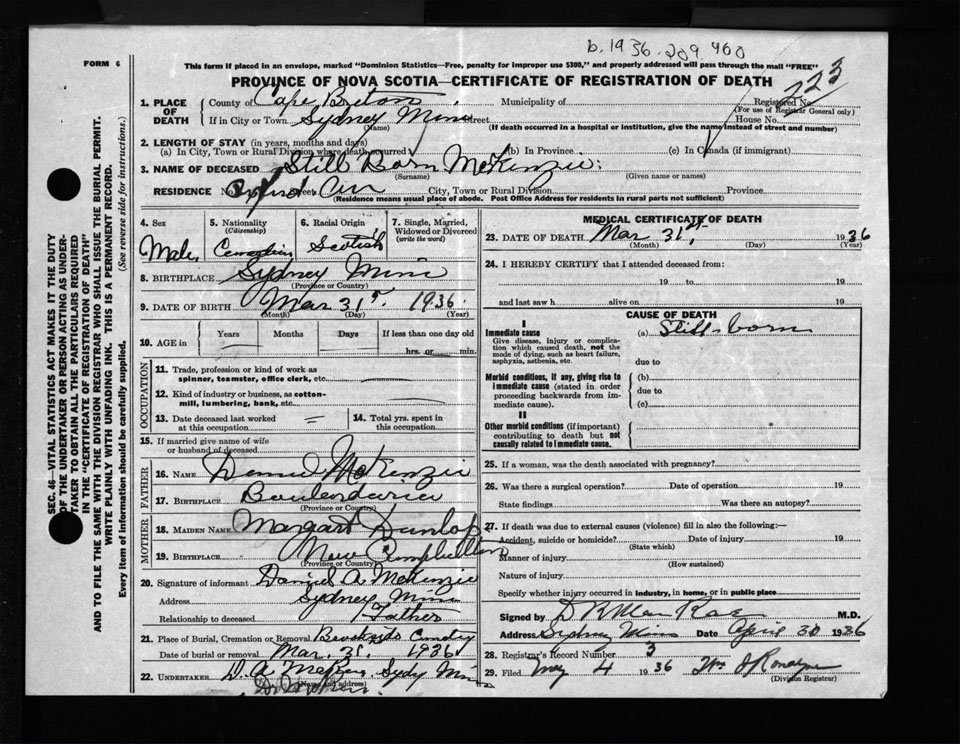 b. 1936. 209 400
FORM 6
This form if placed in an envelope, marked "Dominion Statistics—Free, penalty for improper use $300," and properly addressed will pass through the mail "FREE"
PROVINCE OF NOVA SCOTIA—CERTIFICATE OF REGISTRATION OF DEATH
223
1. PLACE OF DEATH
County of Cape Breton Municipality of Registered No.
(For use of Registrar General only)
If in City or Town Sydney Mines Street House No.
(Name) (If death occurred in a hospital or institution, give the name instead of street and number)
2. LENGTH OF STAY (in years, months and days)
(a) In City, Town or Rural Division where death occurred (b) In Province (c) In Canada (if immigrant)
3. NAME OF DECEASED Still Born McKenzie
(Surname) (Given name or names)
RESIDENCE No. Street City, Town or Rural Division Province
(Residence means usual place of abode. Post Office Address for residents in rural parts not sufficient)
4. Sex 5. Nationality (Citizenship) 6. Racial Origin 7. Single, Married, Widowed or Divorced (write the word)
Male, Canadian Scotish
8. BIRTHPLACE Sydney Mines
(Province or Country)
9. DATE OF BIRTH Mar 31st 1936
(Month) (Day) (Year)
10. AGE in Years Months Days If less than one day old
hrs. or min.
OCCUPATION
11. Trade, profession or kind of work as spinner, teamster, office clerk, etc.
12. Kind of industry or business, as cotton-mill, lumbering, bank, etc.
13. Date deceased last worked at this occupation 14. Total yrs. spent in this occupation
15. If married give name of wife or husband of deceased
FATHER
16. NAME Daniel McKenzie
17. BIRTHPLACE Boulardarie
(Province or Country)
MOTHER
18. MAIDEN NAME Margaret Dunlop
19. BIRTHPLACE New Campbellton
(Province or Country)
20. Signature of informant Daniel A. McKenzie
Address Sydney Mines
Relationship to deceased Father
21. Place of Burial, Cremation or Removal Brookside Cemetry
Date of burial or removal Mar. 31. 1936
22. UNDERTAKER D. A. Sydy Mines
(Name and address)
MEDICAL CERTIFICATE OF DEATH
23. DATE OF DEATH Mar 31st, 1936
(Month) (Day) (Year)
24. I HEREBY CERTIFY that I attended deceased from:
19 to 19
and last saw h alive on 19
CAUSE OF DEATH
I
Immediate cause (a) Still-born
Give disease, injury or complication which caused death, not the mode of dying, such as heart failure, asphyxia, asthenia, etc.
due to
Morbid conditions, if any, giving rise to immediate cause (stated in order proceeding backwards from immediate cause).
(b)
due to
(c)
II
Other morbid conditions (if important) contributing to death but not causally related to immediate cause.
25. If a woman, was the death associated with pregnancy?
26. Was there a surgical operation? Date of operation 19
State findings Was there an autopsy?
27. If death was due to external causes (violence) fill in also the following:—
Accident, suicide or homicide? Date of injury 19
(State which)
Manner of injury
(How sustained)
Nature of injury
Specify whether injury occurred in industry, in home, or in public place
Signed by M.D.
Address Sydney Mines Date April 30 1936
28. Registrar's Record Number 3
29. Filed May 4 1936 Wm
(Division Registrar)
SEC. 46—VITAL STATISTICS ACT MAKES IT THE DUTY
OF THE UNDERTAKER OR PERSON ACTING AS UNDER-
TAKER TO OBTAIN ALL THE PARTICULARS REQUIRED
IN THE "CERTIFICATE OF REGISTRATION OF DEATH"
AND TO FILE THE SAME WITH THE DIVISION REGISTRAR WHO SHALL ISSUE THE BURIAL PERMIT.
WRITE PLAINLY WITH UNFADING INK. THIS IS A PERMANENT RECORD.
Every item of information should be carefully supplied. (See reverse side for instructions.)